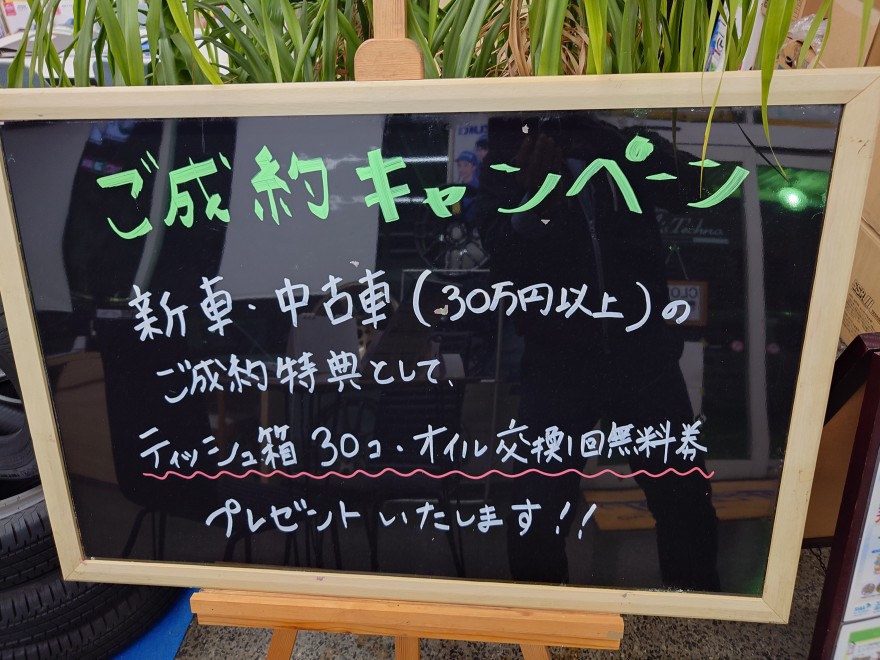 ご成約キャンペーン
新車・中古車(30万円以上)の
ご成約特典として、
ティッシュ箱 30コ・オイル交換1回無料券
プレゼントいたします!!